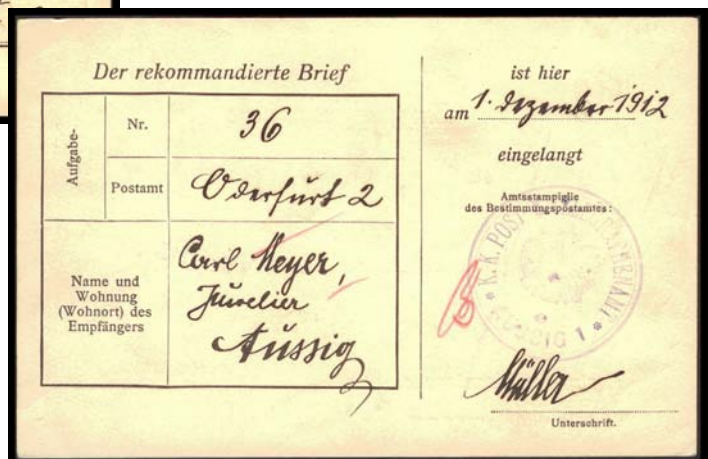 Der rekommandierte Brief
Aufgabe-
Nr.
36
Postamt
Oderfurt 2
Name und
Wohnung
(Wohnort) des
Empfängers
Carl Meyer,
Juwelier
Aussig
ist hier
am 1. Dezember 1912
eingelangt
Amtsstampiglie
des Bestimmungspostamtes:
* K. K. POST
AUSSIG 1 *
Müller
Unterschrift.